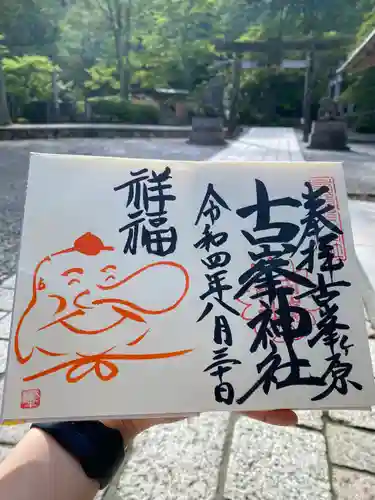 奉拝古峯ヶ原
古峯神社
令和四年八月三十日
祥福